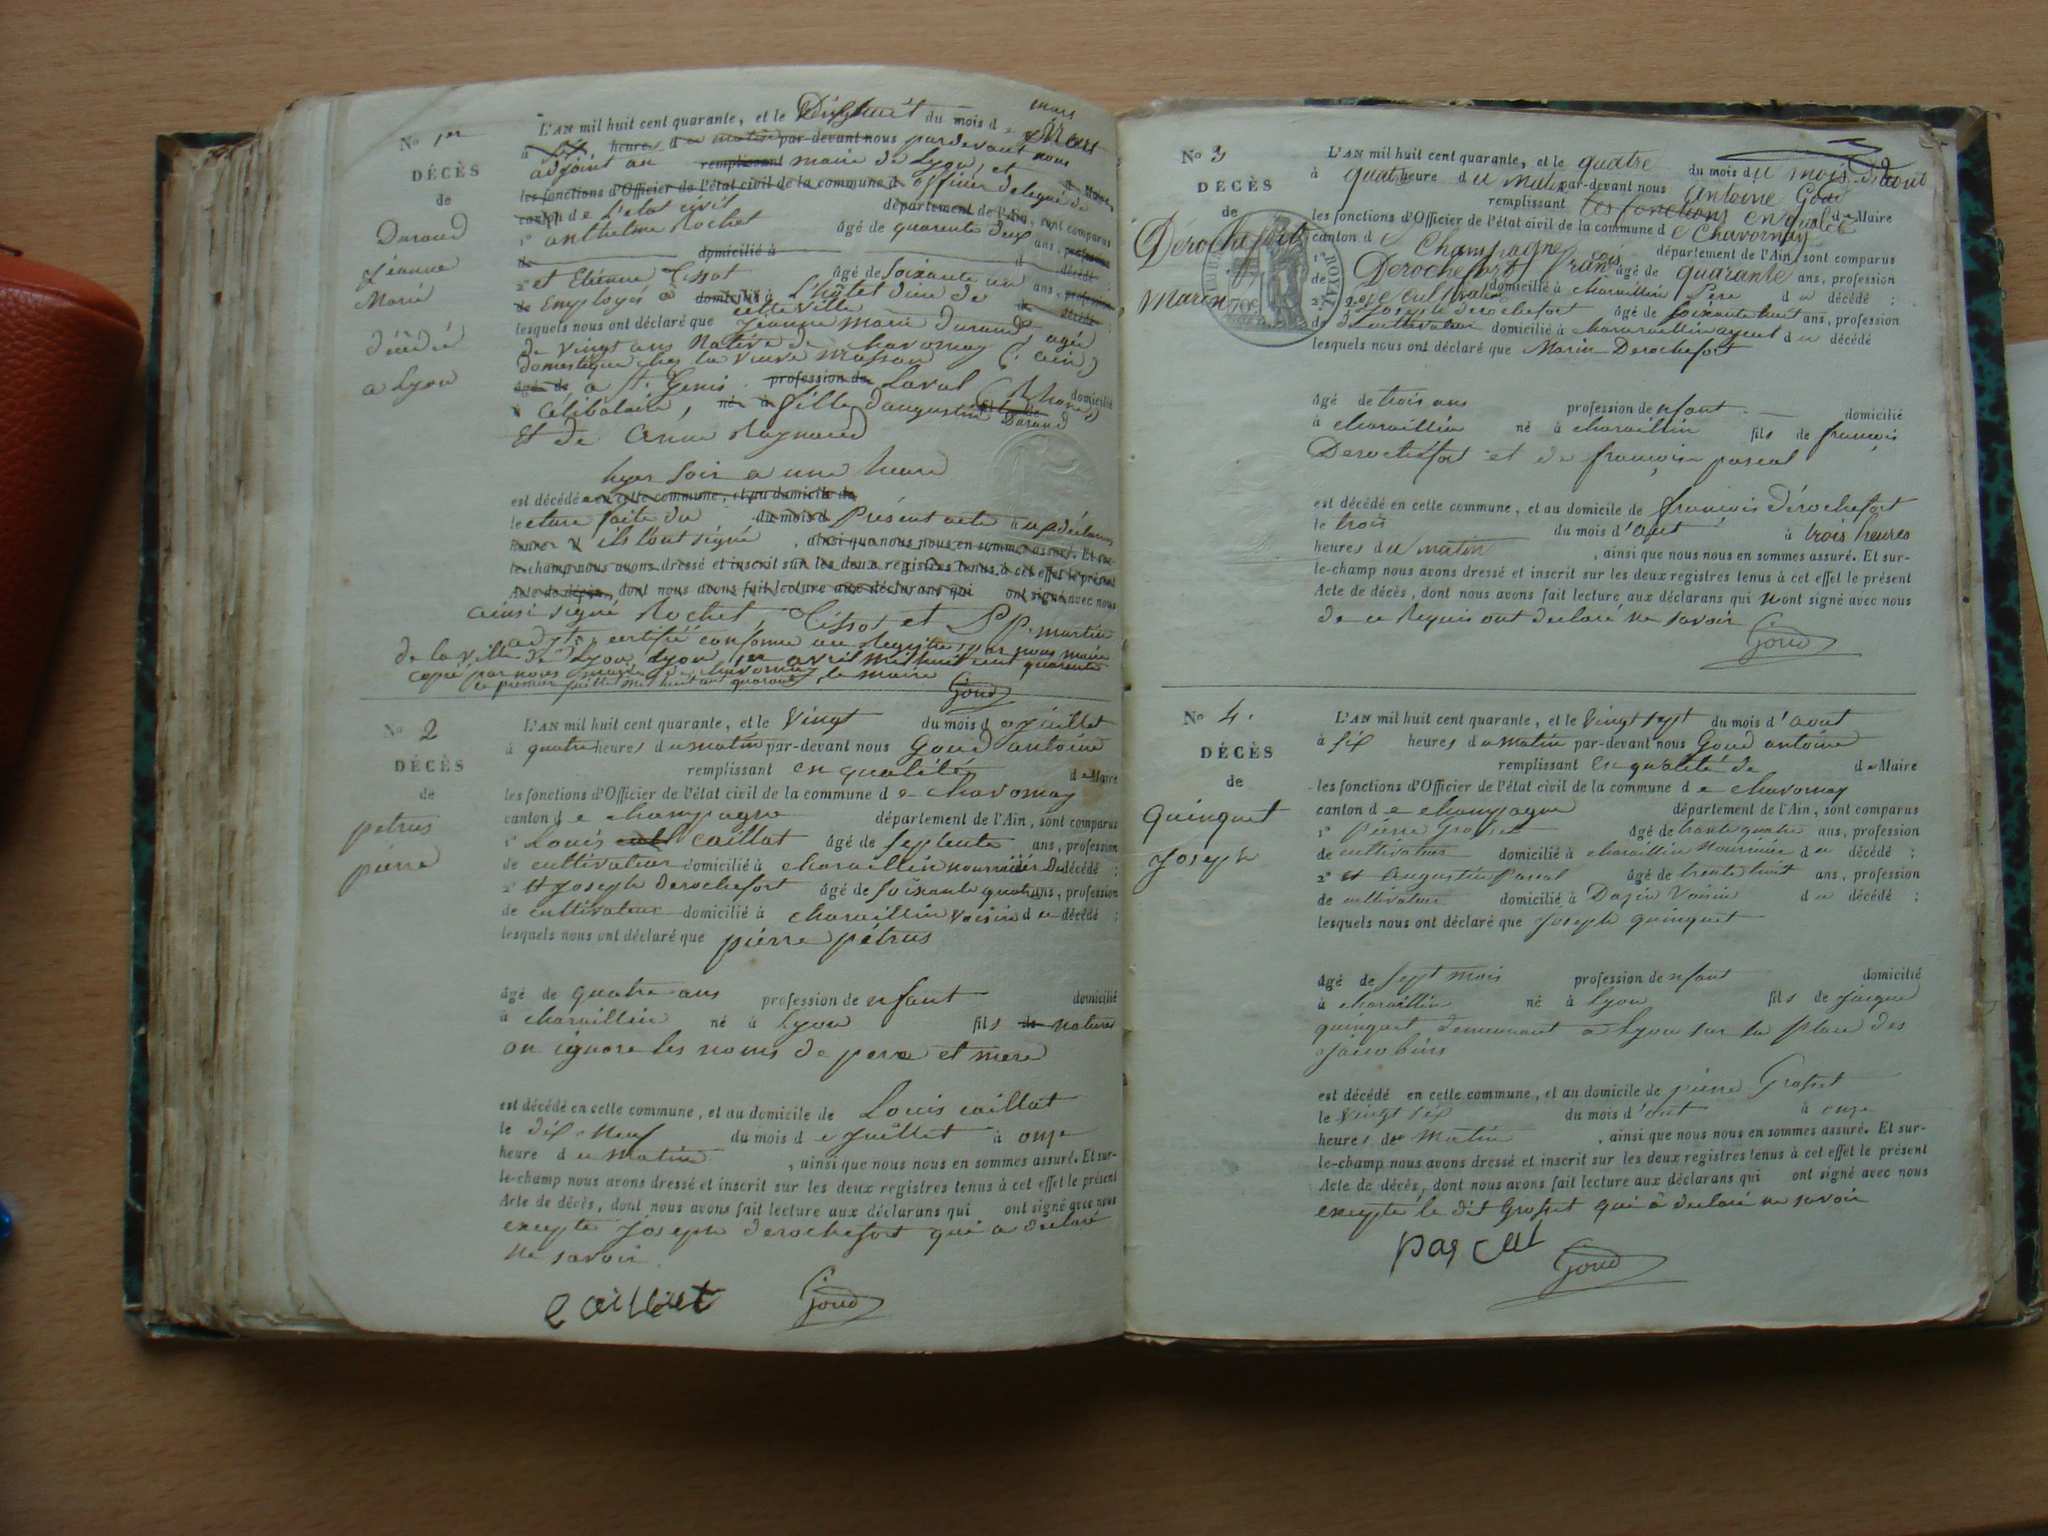 No 1er
DÉCÈS
de
Durand
Jéanne
Marie
décédée
a Lyon
L'AN mil huit cent quarante, et le du mois de mars
à heures du matin par-devant nous pardevant nous
adjoint au remplissant maire de Lyon, et
les fonctions d'Officier de l'état civil de la commune d officier délégué de
canton de L'état civil département de l'Ain, sont comparus
1º anthelme Rochet âgé de quarente deux ans, profession
de domicilié à d décédé ;
2º et Etienne Tissot âgé de soixante un ans, profession
de Employés a domicilié à L'hôtel dieu de
cette ville
lesquels nous ont déclaré que Jeanne marie durand agée
de vingt ans Native de chavornay (ain)
domestique chez la veuve
âgé de a St. Genis profession de Laval (Rhone) domicilié
à Célibataire, né à fille d'augustin Durand
Et de
hyer soir a une heure
est décédé en cette commune, et au domicile de
lecture faite du du mois d Présent acte aux déclarans
heures ils l'ont signé , ainsi que nous nous en sommes assuré. Et sur-
le-champ nous avons dressé et inscrit sur les deux registres tenus à cet effet le présent
Acte de décès, dont nous avons fait lecture aux déclarans qui ont signé avec nous
ainsi signé Rochet, Tissot et martin
adjt. certifié conforme au Registre, par nous maire
de la ville de Lyon, Lyon 1er avril mil huit cent quarente
copié par nous maire de chavornay
le premier juillet mil huit cent quarante, le maire
Goud
No 2
DÉCÈS
de
petrus
pierre
L'AN mil huit cent quarante, et le Vingt du mois de juillet
à quatre heures du matin par-devant nous Goud antoine
remplissant en qualité de Maire
les fonctions d'Officier de l'état civil de la commune de chavornay
canton de champagne département de l'Ain, sont comparus
1º Louis caillat âgé de septente ans, profession
de cultivateur domicilié à charaillin nourricier Du décédé ;
2º et Joseph Derochefort âgé de soixante quatre ans, profession
de cultivateur domicilié à charaillin voisin du décédé ;
lesquels nous ont déclaré que pierre pétrus
âgé de quatre ans profession de nfant domicilié
à charaillin né à Lyon fils de naturel
on ignore les noms de pere et mere
est décédé en cette commune, et au domicile de Louis caillat
le dix Neuf du mois de juillet à onze
heure du matin , ainsi que nous nous en sommes assuré. Et sur-
le-champ nous avons dressé et inscrit sur les deux registres tenus à cet effet le présent
Acte de décès, dont nous avons fait lecture aux déclarans qui ont signé avec nous
excepté Joseph derochefort qui a déclaré
ne savoir
caillat Goud
No 3
DÉCÈS
de
Derochefort
Marin
ROYAL
70c
L'AN mil huit cent quarante, et le quatre du mois du mois d'aout
à quatre heure du matin par-devant nous Antoine Goud
remplissant les fonctions en qualité de Maire
les fonctions d'Officier de l'état civil de la commune de Chavornay
canton de Champagne département de l'Ain, sont comparus
1º Derochefort François âgé de quarante ans, profession
de cultivateur domicilié à charaillin Père du décédé ;
2º Joseph derochefort âgé de soixante huit ans, profession
de cultivateur domicilié à charaillin ayeul du décédé
lesquels nous ont déclaré que Marin Derochefort
âgé de trois ans profession de nfant domicilié
à charaillin né à charaillin fils de françois
Derochefort et de françoise pascal
est décédé en cette commune, et au domicile de françois dérochefort
le trois du mois d'aout à trois heures
heures du matin , ainsi que nous nous en sommes assuré. Et sur-
le-champ nous avons dressé et inscrit sur les deux registres tenus à cet effet le présent
Acte de décès, dont nous avons fait lecture aux déclarans qui nont signé avec nous
de ce Requis ont déclaré ne savoir
Goud
No 4.
DÉCÈS
de
Quinquet
Joseph
L'AN mil huit cent quarante, et le Vingt sept du mois d'aout
à six heures du matin par-devant nous Goud antoine
remplissant en qualité de de Maire
les fonctions d'Officier de l'état civil de la commune de chavornay
canton de champagne département de l'Ain, sont comparus
1º Pierre Grosset âgé de trante quatre ans, profession
de cultivateur domicilié à charaillin Nourricier du décédé ;
2º et Augustin Pascal âgé de trente huit ans, profession
de cultivateur domicilié à Dazin Voisin du décédé ;
lesquels nous ont déclaré que Joseph quinquet
âgé de sept mois profession de nfant domicilié
à charaillin né à Lyon fils de Jacque
quinquet demeurant a Lyon sur la place des
Jacobins
est décédé en cette commune, et au domicile de pierre Grosset
le Vingt six du mois d'out à onze
heures de Matin , ainsi que nous nous en sommes assuré. Et sur-
le-champ nous avons dressé et inscrit sur les deux registres tenus à cet effet le présent
Acte de décès, dont nous avons fait lecture aux déclarans qui ont signé avec nous
excepté le dit Grosset qui a déclaré ne savoir
pascal Goud